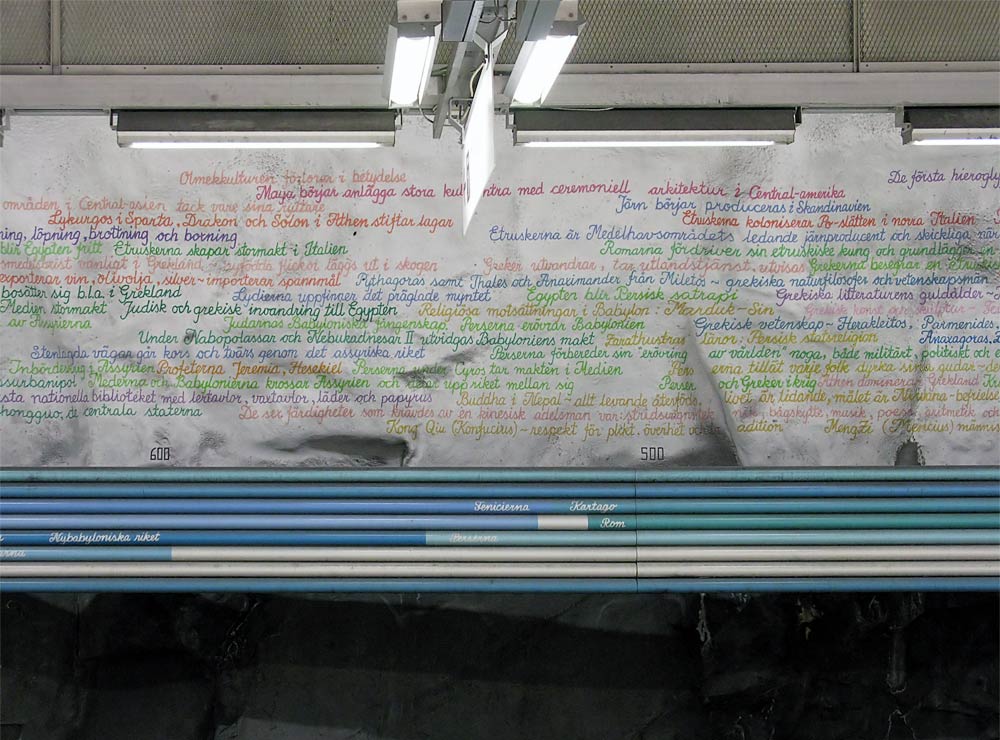 Olmekkulturen förlorar i betydelse
Maya börjar anlägga stora kul ntra med ceremoniell arkitektur i Central-amerika
De första hierogly
områden i Central-asien tack vare sina ryttare
Järn börjar produceras i Skandinavien
Lykurgos i Sparta, Drakon och Solon i Athen stiftar lagar
Etruskerna koloniserar Po-slätten i norra Italien
ning, löpning, brottning och boxning
Etruskerna är Medelhavsområdets ledande järnproducent och skickliga
blir Egypten fritt Etruskerna skapar stormakt i Italien
Romarna fördriver sin etruskiske kung och grundlägger
i Grekland flickor läggs ut i skogen
Greker utvandrar, tar utlandstjänst,
Grekerna besegrar en
exporterar vin, olivolja, silver~importerar spannmål
Pythagoras samt Thales och Anaximander från Miletos~grekiska naturfilosofer och vetenskapsmän
bosätter sig bl.a. i Grekland
Lydierna uppfinner det präglade myntet
Egypten blir Persisk satrapi
Grekiska litteraturens guldålder~
Medien stormakt Judisk och grekisk invandring till Egypten
Religiösa motsättningar i Babylon: Marduk~Sin
Grekisk konst och skulptur
av Assyrierna
Judarnas Babyloniska fångenskap. Perserna erövrar Babylonien
Grekisk vetenskap~Herakleitos, Parmenides
Under Nabopolassar och Nebukadnesar II utvidgas Babyloniens makt
Zarathustras läror. Persisk statsreligion
Anaxagoras,
Stenlagda vägar går kors och tvärs genom det assyriska riket
Perserna förbereder sin "erövring av världen" noga, både militärt, politiskt och
Inbördeskrig i Assyrien Profeterna Jeremia, Hesekiel Perserna under Cyros tar makten i Medien
Pers erna tillåt varje folk dyrka sina gudar
ssurbanipal Mederna och Babylonierna krossar Assyrien och upp riket mellan sig
Perser och Greker i krig Athen dominerar Grekland
sta nationella biblioteket med lertavlor, vaxtavlor, läder och papyrus
Buddha i Nepal~allt levande återföds. livet är lidande, målet är Nirvana-befrielse
hongguo, de centrala staterna
De sex färdigheter som krävdes av en kinesisk adelsman var: stridsvagnstek nik, bågskytte, musik, poesi, aritmetik och
Kong Qiu (Konfucius)~respekt för plikt, överhet och adition
MengZi (Mencius)
600
500
Fenicierna Kartago
Rom
Nybabyloniska riket
Perserna
erna